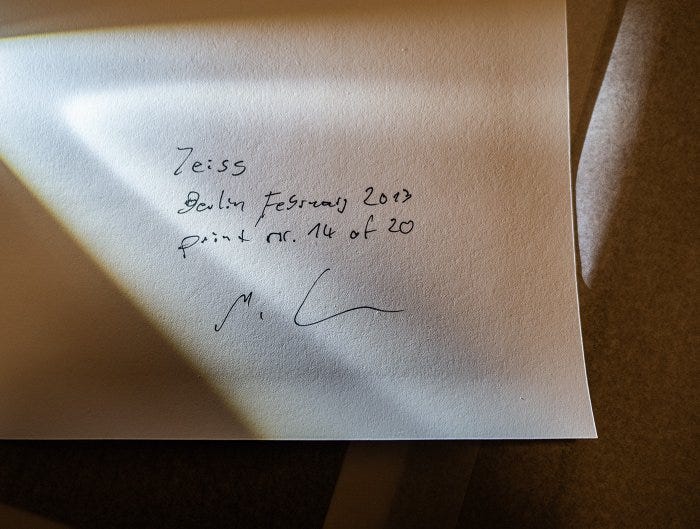 Zeiss
Berlin February 2013
print nr. 14 of 20
M.